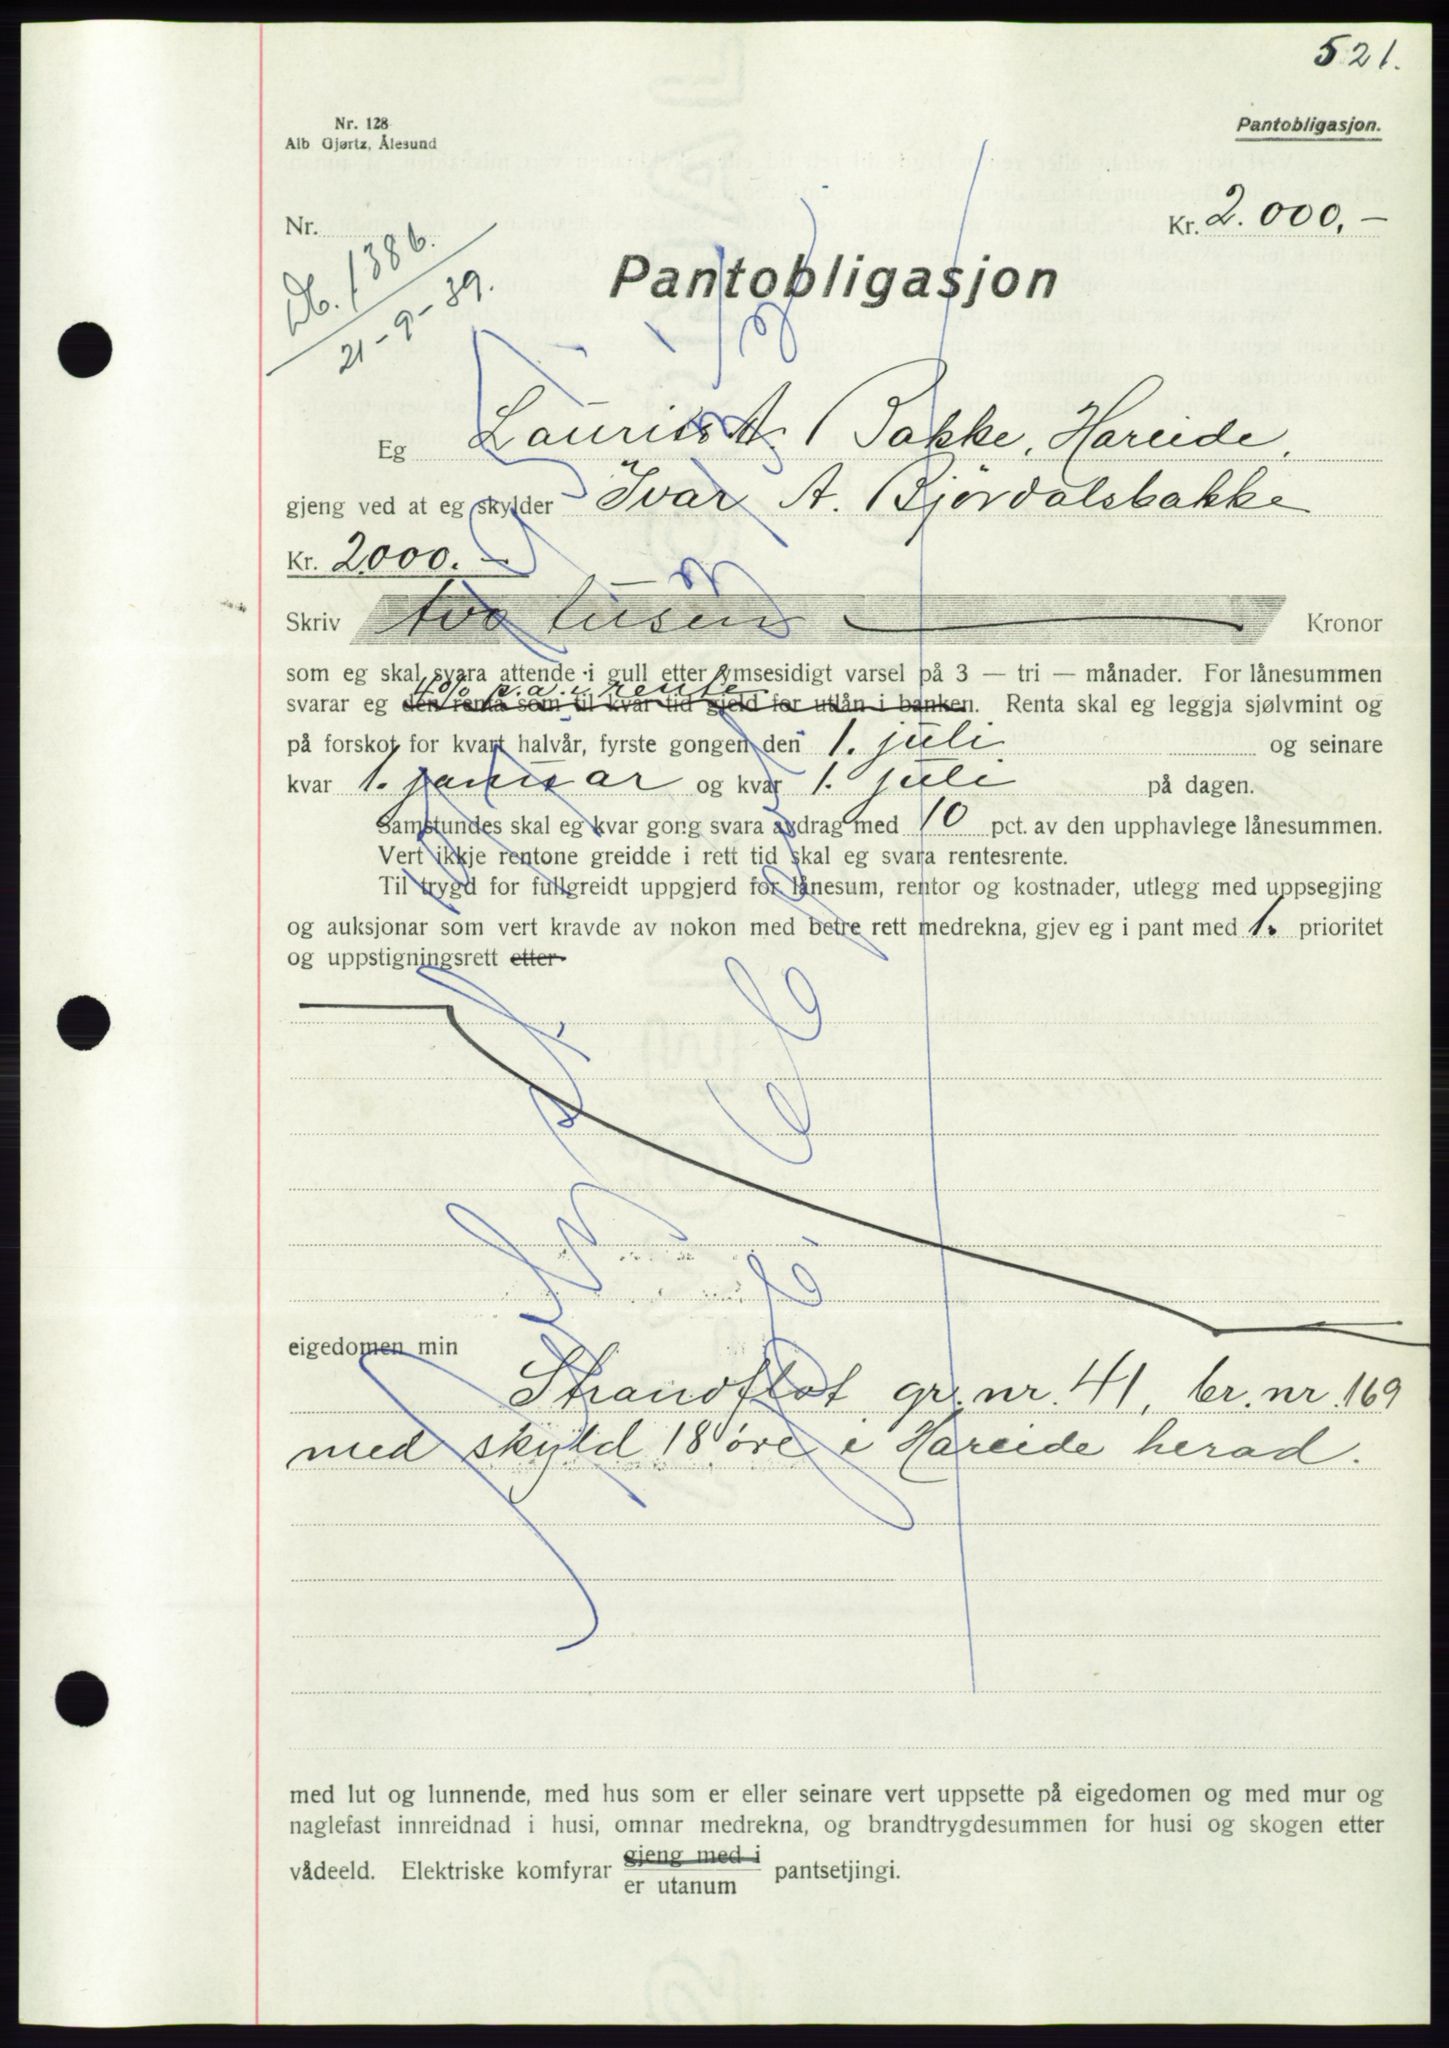 521.
Nr. 128
Alb Gjørtz, Ålesund
Pantobligasjon.
Nr.
Kr. 2.000,-
Db. 1386.
21-9-39.
Pantobligasjon
Eg Laurits A. Bakke, Hareide,
gjeng ved at eg skylder Ivar A. Bjørdalsbakke
Kr. 2000.-
Skriv tvo tusen Kronor
som eg skal svara attende i gull etter ymsesidigt varsel på 3 — tri — månader. For lånesummen
4% p.a. i rente
svarar eg den renta som til kvar tid gjeld for utlån i banken. Renta skal eg leggja sjølvmint og
på forskot for kvart halvår, fyrste gongen den 1. juli og seinare
kvar 1. januar og kvar 1. juli på dagen.
Samstundes skal eg kvar gong svara avdrag med 10 pct. av den upphavlege lånesummen.
Vert ikkje rentone greidde i rett tid skal eg svara rentesrente.
Til trygd for fullgreidt uppgjerd for lånesum, rentor og kostnader, utlegg med uppsegjing
og auksjonar som vert kravde av nokon med betre rett medrekna, gjev eg i pant med 1. prioritet
og uppstigningsrett etter
eigedomen min
Strandflot gr. nr. 41, br. nr. 169
med skyld 18 øre i Hareide herad.
med lut og lunnende, med hus som er eller seinare vert uppsette på eigedomen og med mur og
naglefast innreidnad i husi, omnar medrekna, og brandtrygdesummen for husi og skogen etter
vådeeld. Elektriske komfyrar gjeng med i pantsetjingi.
er utanum